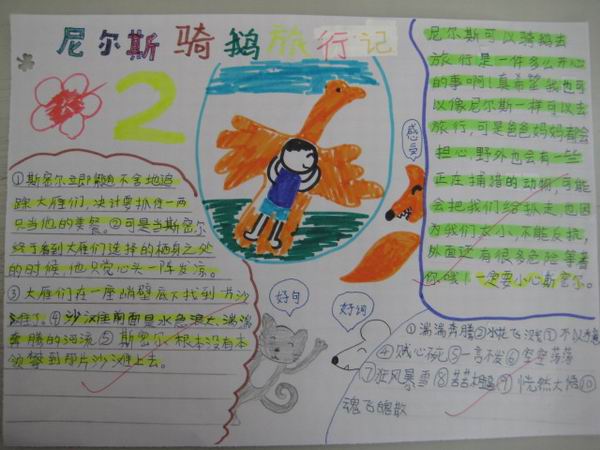 尼尔斯骑鹅旅行记
2
①斯密尔立即锲而不舍地追
踪大雁们,决计要抓住一两
只当他的美餐。②可是当斯密尔
终于看到大雁们选择的栖身之处
的时候他只觉心头一阵发凉。
③大雁们在一座峭壁底下找到一片沙
滩。④沙滩前面是水急浪大,湍湍
奔腾的河流⑤斯密尔根本没有本
领攀到那片沙滩上去。
感受
尼尔斯可以骑鹅去
旅行是一件多么开心
的事啊!真希望我也可
以像尼尔斯一样可以去
旅行,可是爸爸妈妈都会
担心,野外也会有一些
正在捕猎的动物,可能
会把我们给抓走,也因
为我们太小,不能反抗,
外面还有很多危险等着
你哦!一定要小心斯密尔。
好句
好词
①湍湍奔腾②水花飞溅③不以为
④贼心不死⑤一言不发⑥空空荡荡
⑦狂风暴雪⑧苦苦⑨恍然大悟⑩
魂飞魄散